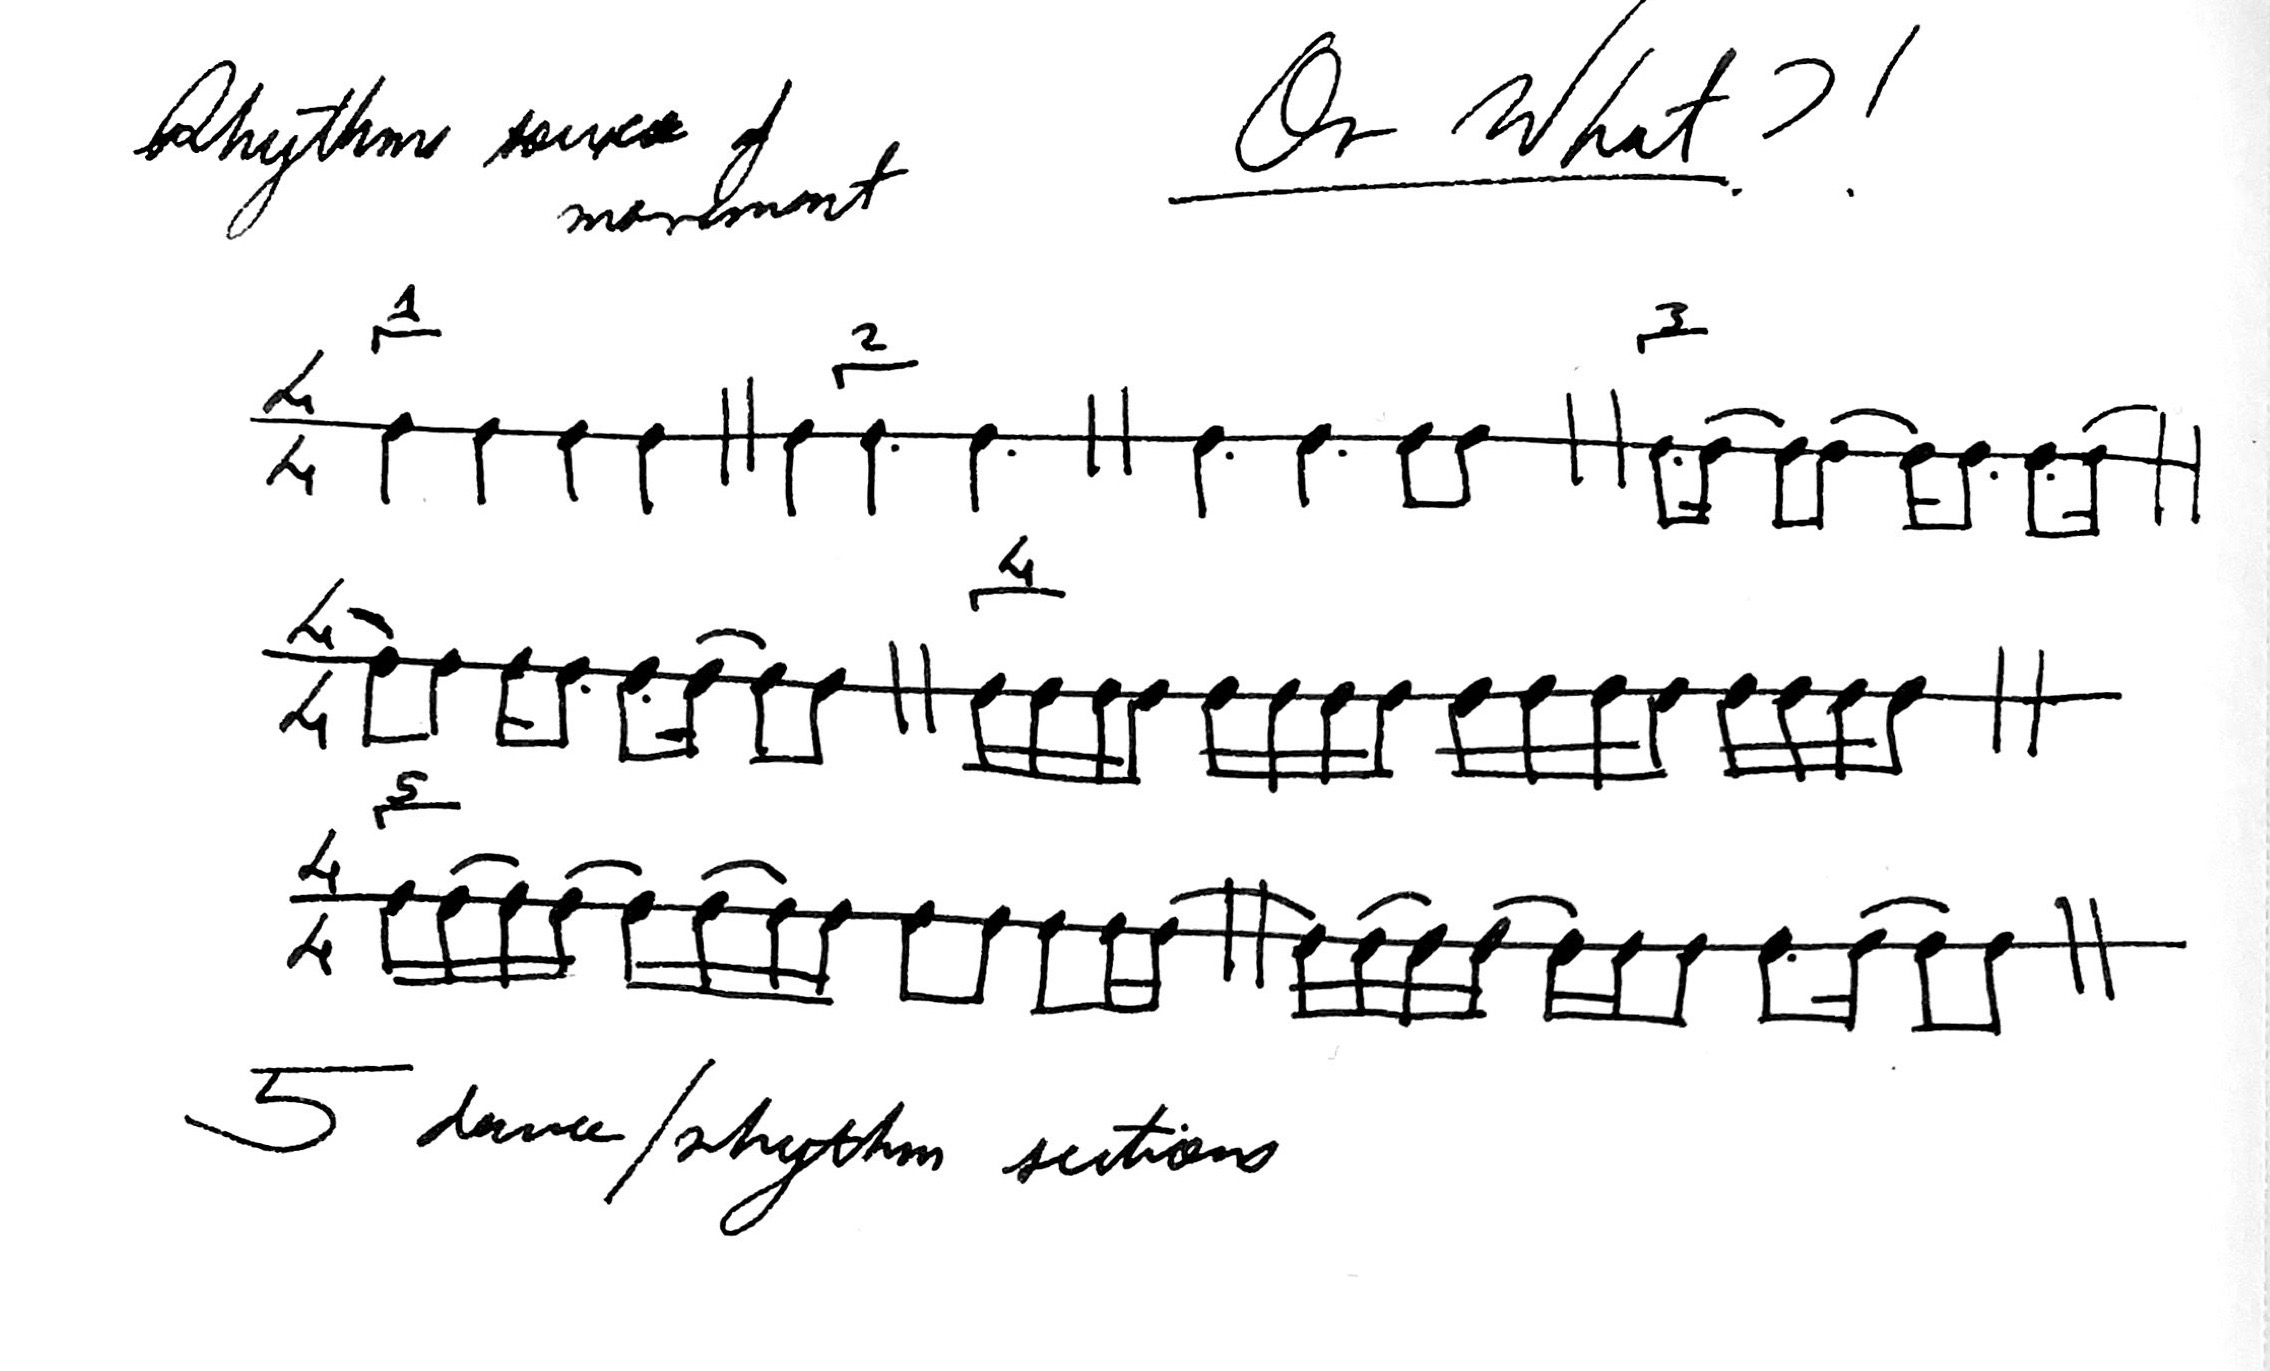 Rhythm source of
movement
Or What?!
1
2
3
4
4
4
4
4
5
4
4
5 dance/rhythm sections